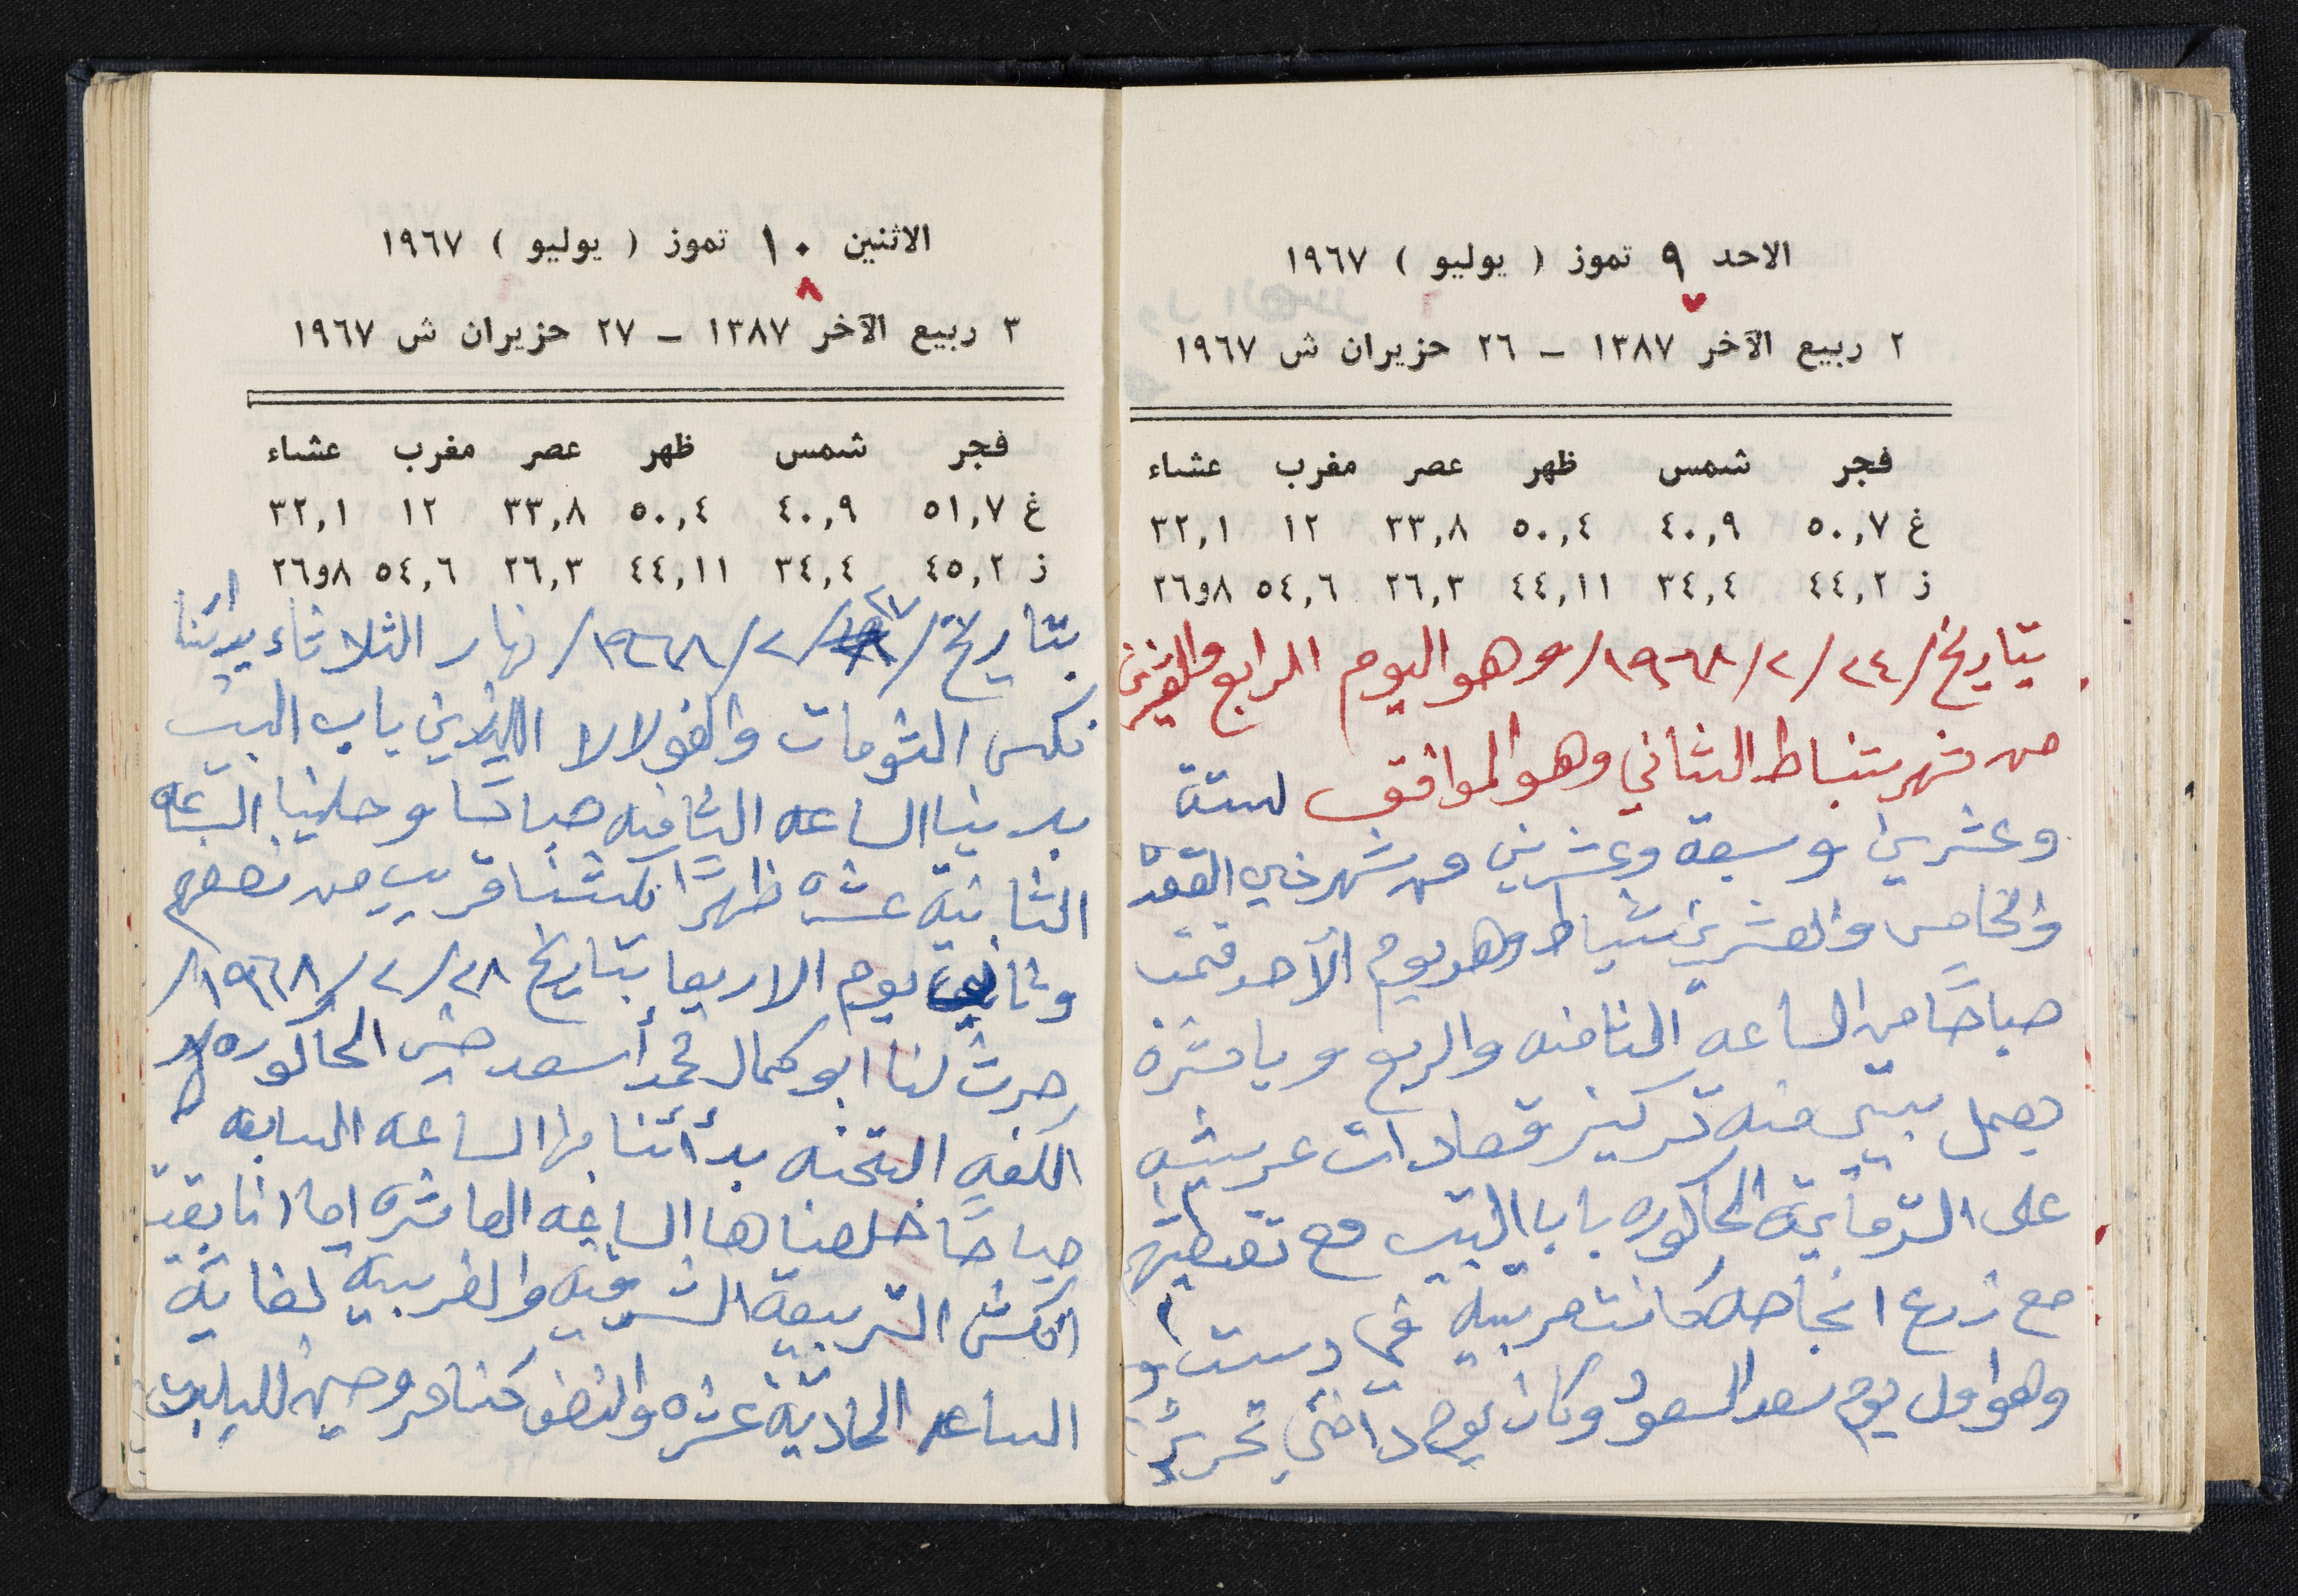 الاحد ٩ تموز ( يوليو ) ١٩٦٧
٧
٢ ربيع الآخر ١٣٨٧ – ٢٦ حزيران ش ١٩٦٧
فجر شمس ظهر عصر مغرب عشاء
غ ٥٠,٧ ٤٠,٩ ٥٠,٤ ٣٣,٨ ١٢ ٣٢,١
ز ٤٤,٢ ٣٤,٤ ٤٤,١١ ٢٦,٣ ٥٤,٦ ٨و٢٦
بتاريخ /٢٤/٢/١٩٦٨/ وهو اليوم الرابع والعشرين
من شهر شباط الثاني وهو الموافق لستة
وعشرين وسبعة وعشرين من شهر ذي القعدة
والخامس والعشرين شباط وهو يوم الأحد قمت
صباحًا من الساعه الثامنه والربع وباشرة
بعمل تركيز عريشه
على الحاكوره باب البيت مع تغطيتها
مع زرع كانت مربيه في دست
وهو اول يوم سعد السعود وكان يوم
الاثنين ١٠ تموز ( يوليو ) ١٩٦٧
٨
٣ ربيع الآخر ١٣٨٧ – ٢٧ حزيران ش ١٩٦٧
فجر شمس ظهر عصر مغرب عشاء
غ ٥١,٧ ٤٠,٩ ٥٠,٤ ٣٣,٨ ١٢ ٣٢,١
ز ٤٥,٢ ٣٤,٤ ٤٤,١١ ٢٦,٣ ٥٤,٦ ٨و٢٦
بتاريخ /٢٧/٢/١٩٦٨/ نهار الثلاثاء بدئنا
نكس الثومات والفولالا باب البيت
بدينا الساعه الثامنه صباحًا وحلينا الساعه
الثانية عشره ظهرًا نكشنا قريب من نصفهم
وثاني يوم الاربعا بتاريخ ٢٨/٢/١٩٦٨/
حرث لنا ابو كمال محمد أسعد الحاكوره
اللفه التحته بدأئنا بها الساعه السابعه
صباحًا خلصناها الساعه العاشره اما انا بقيت
انكش التربيعة الشرقيه والغربية لغاية
الساعه الحادية عشره والنصف كنا مروحين للبيت